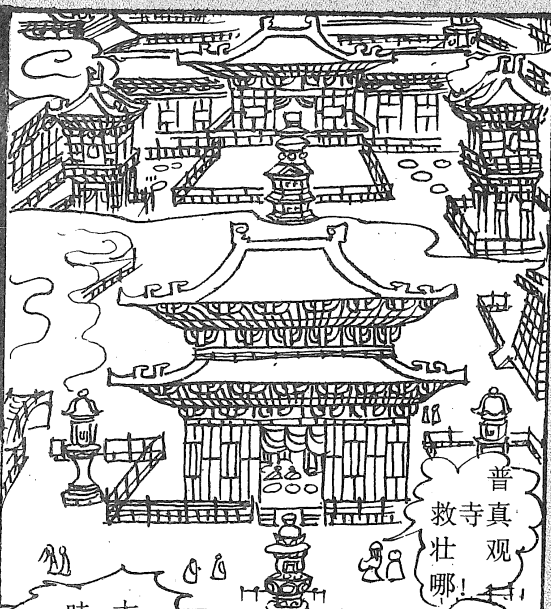 普
救寺真
壮观
哪！